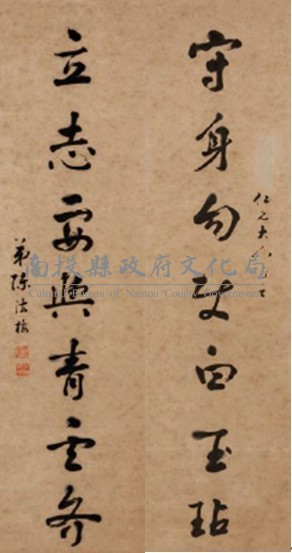 守身勿白玉玷
仁之大
立志要與青云齊
弟陳
南投縣政府文化局
Cultural Bureau of Nantou County Government